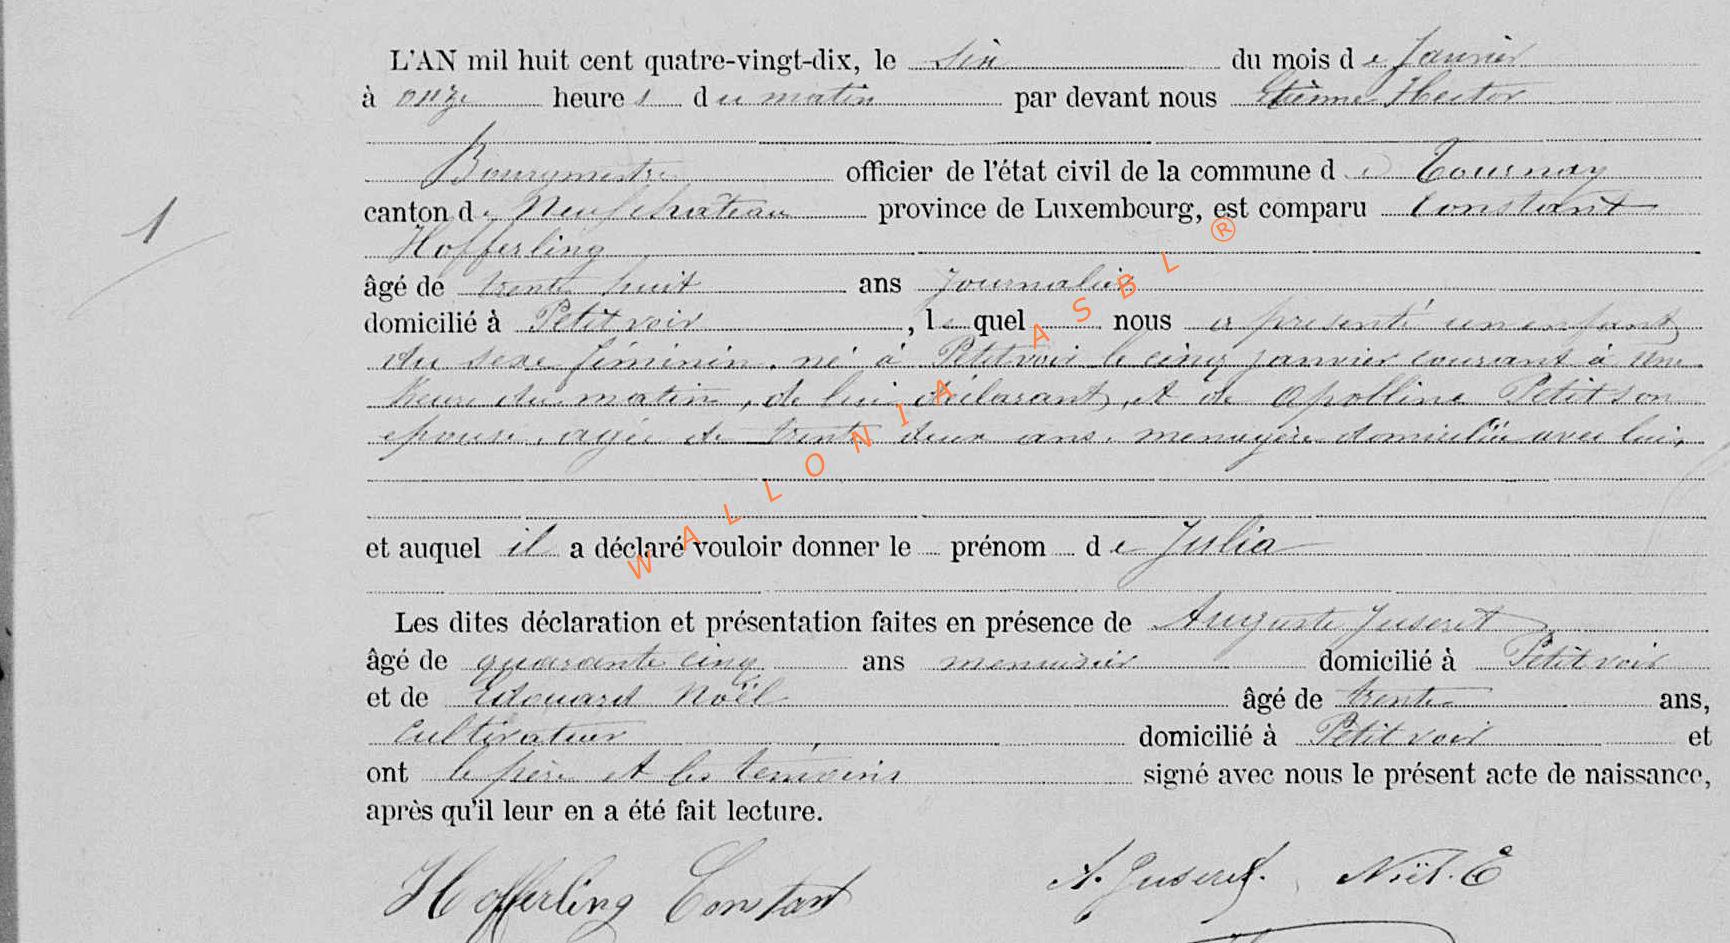 L'AN mil huit cent quatre-vingt-dix, le six du mois de Janvier
à onze heures du matin par devant nous Etienne Hector
Bourgmestre officier de l'état civil de la commune de Tournay
1
canton de Neufchateau province de Luxembourg, est comparu Constant
Hofferling
âgé de trente huit ans Journalier
domicilié à Petitvoir, lequel nous a présenté un enfant
du sexe féminin, né à Petitvoir le cinq janvier courant à une
heure du matin, de lui déclarant, et de Apolline Petit son
épouse, agée de trente deux ans, menagère domiciliée avec lui,
et auquel il a déclaré vouloir donner le prénom de Julia
Les dites déclaration et présentation faites en présence de Auguste Juseret
âgé de quarante cinq ans menuisier domicilié à Petitvoir
et de Edouard Noël âgé de trente ans,
Cultivateur domicilié à Petitvoir et
ont le père et les témoins signé avec nous le présent acte de naissance,
après qu'il leur en a été fait lecture.
Hofferling Constant A. Juseret. Noël. E
WALLONIA ASBL ®